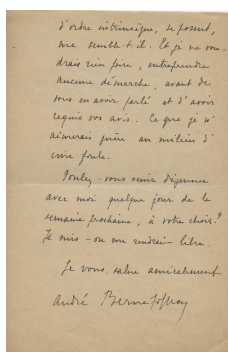 d'ordre intrinsèque, se posent,
me semble-t-il. Et je ne vou-
drais rien faire, entreprendre
aucune démarche, avant de
vous en avoir parlé et d'avoir
requis vos avis. Ce que je n'
aimerais guère au milieu d'
une foule.
Voulez-vous venir déjeuner
avec moi quelque jour de la
semaine prochaine, à votre choix ?
Je suis - ou me rendrai - libre.
Je vous salue amicalement
André Berne Joffroy